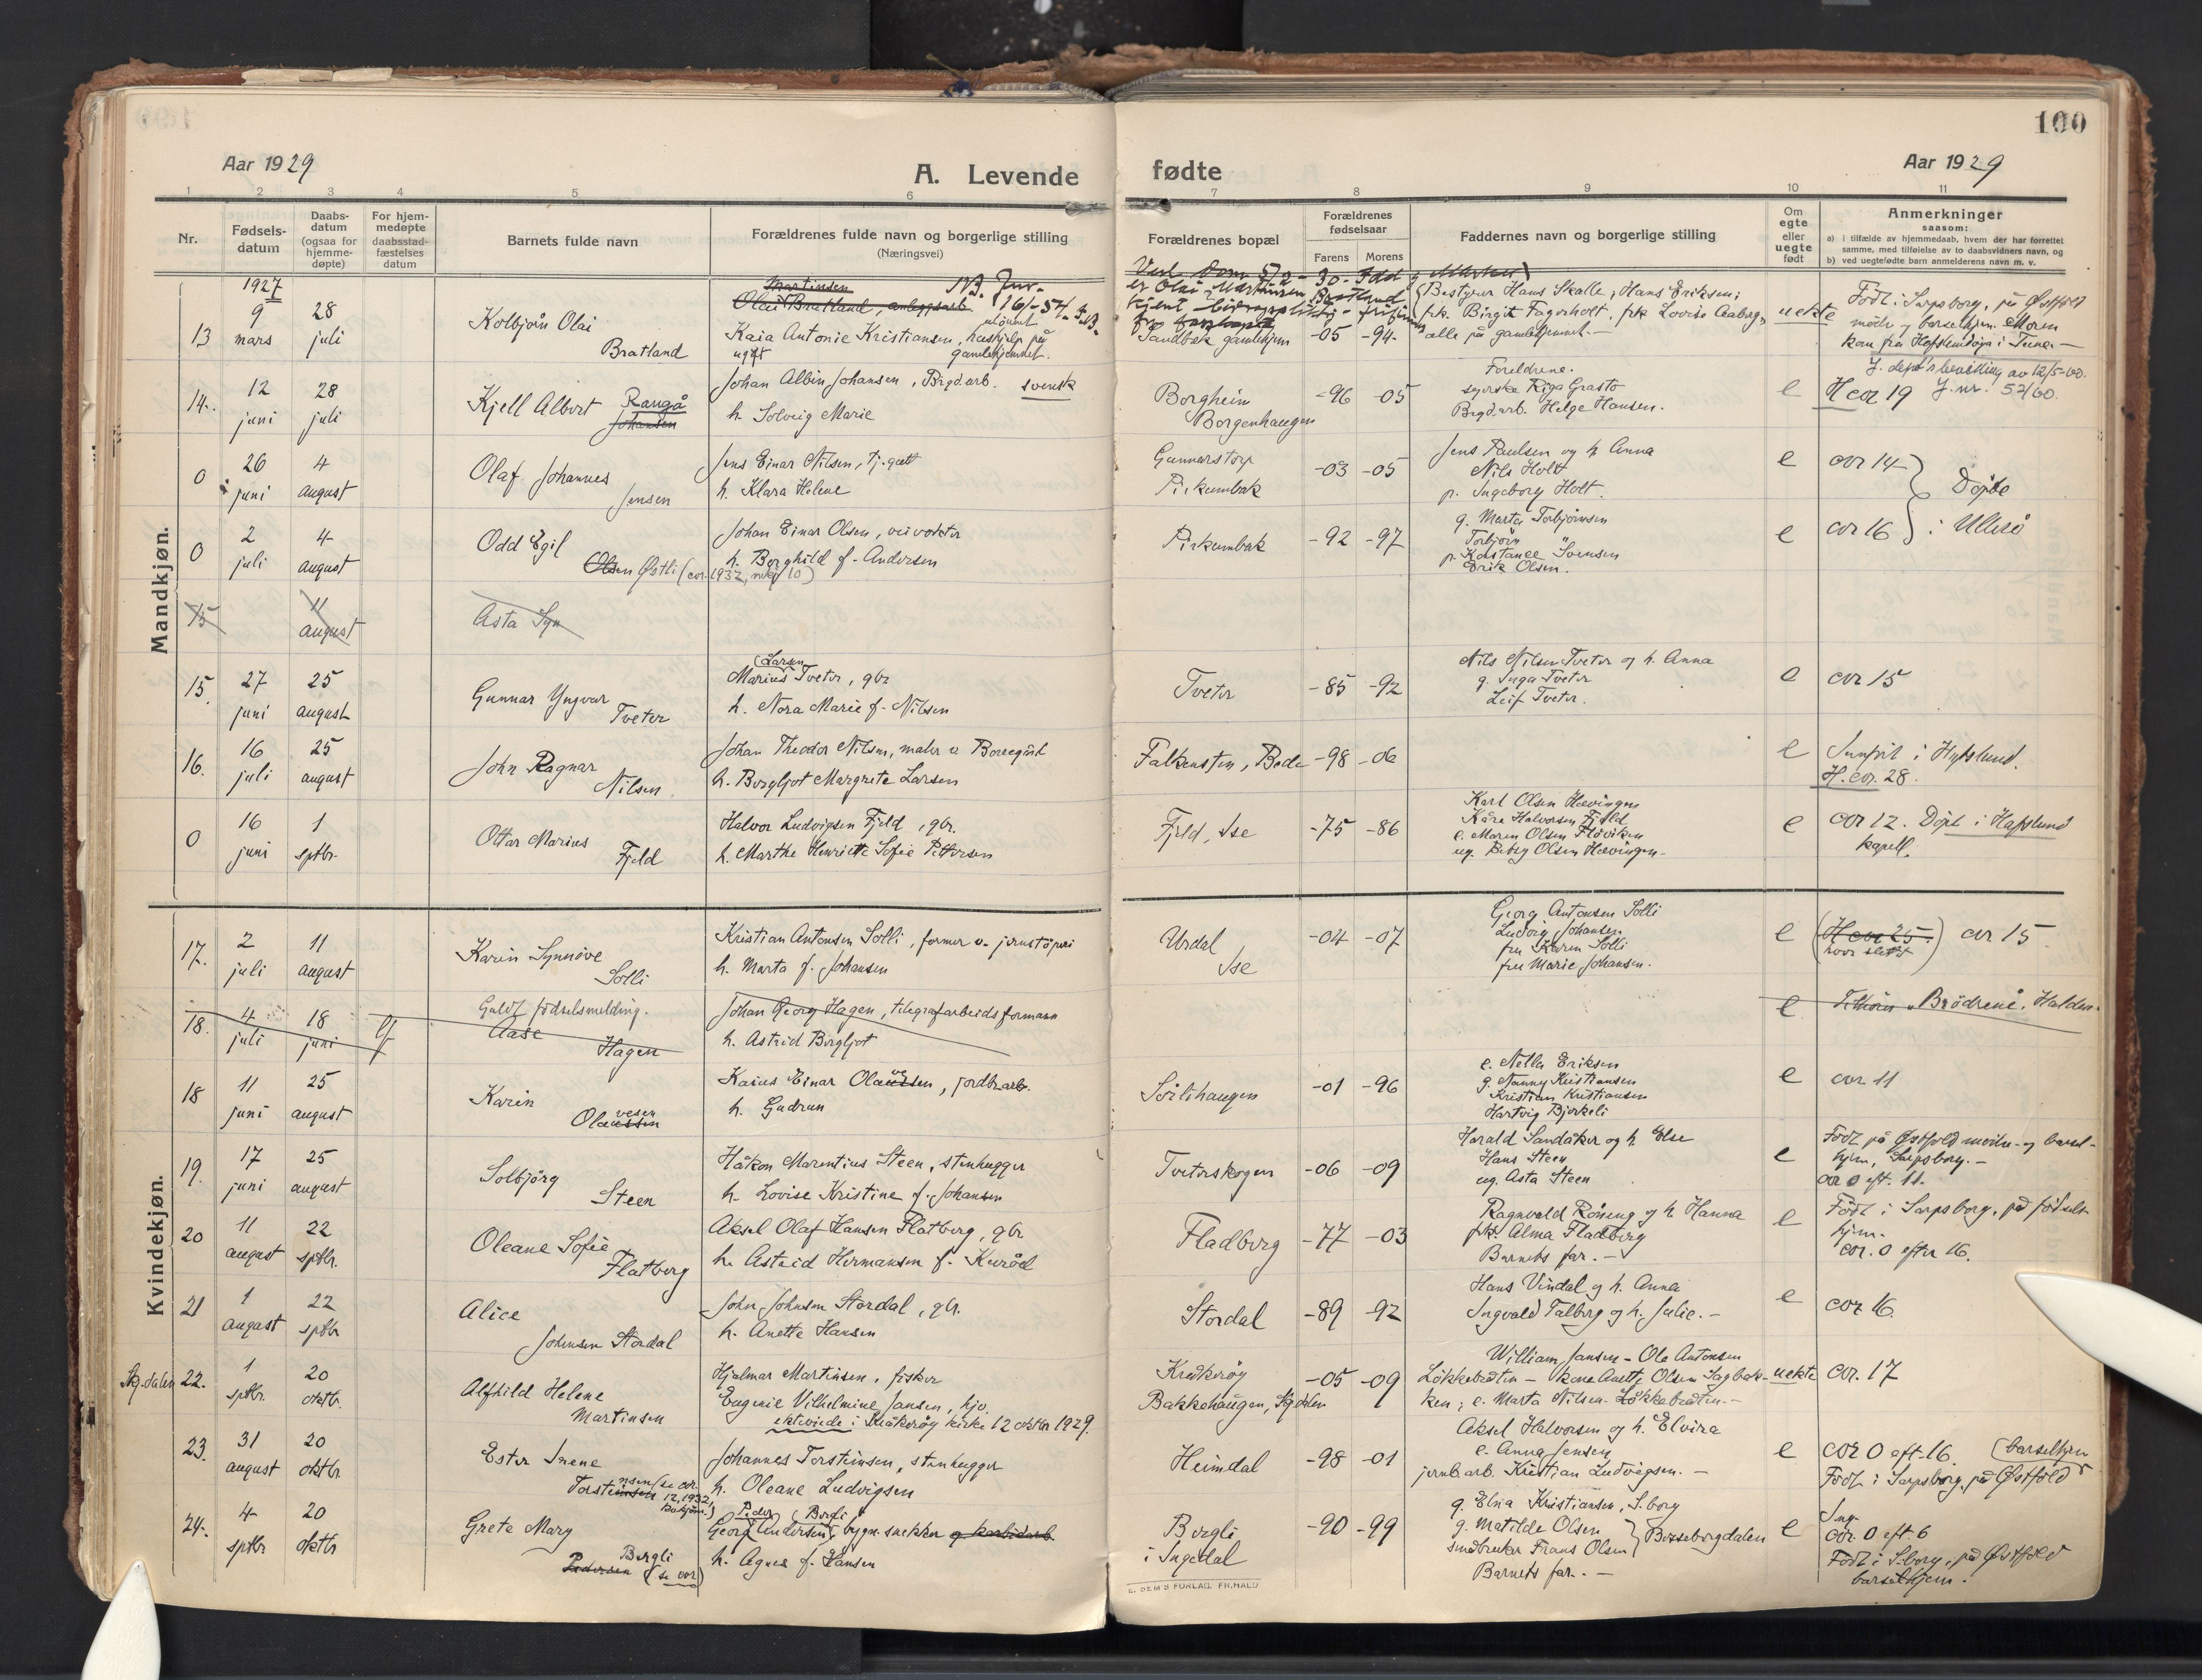 100
Aar 1929
A. Levende
fødte
Aar 1929
1 2 3 4 5 6 7 8 9 10 11
Nr.
Fødsels-
datum
Daabs-
datum
(ogsaa for
hjemme-
døpte)
For hjem-
medøpte
daabsstad-
fæstelses
datum
Barnets fulde navn
Forældrenes fulde navn og borgerlige stilling
(Næringsvei)
Forældrenes bopæl
Forældrenes
fødselsaar
Farens Morens
Faddernes navn og borgerlige stilling
Om
egte
eller
uegte
født
Anmerkninger
saasom:
a) i tilfælde av hjemmedaab, hvem der har forrettet
samme, med tilføielse av to daabsvidners navn, og
b) ved uegtefødte barn anmelderens navn m. v.
Mandkjøn.
13
1927
9
mars
28
juli
Kolbjørn Olai
Bratland
Martinsen
Olai Bratland, anleggsarb.
Kaia Antonie Kristiansen, hushjelp på
ugift gamlehjemmet.
Sandbæk gamlehjem -05 -94
Bestyrer Hans Skalle, Hans Eriksen;
frk. Birgit Fagerholt, frk Lovise Aaberg,
alle på gamlehjemmet.-
uekte
Født i Sarpsborg, på Østfold
mødre- og barselhjem. Moren
kom fra Hafslundsøya i Tune.-
14.
12
juni
28
juli
Kjell Albert Rangå
Johansen
Johan Albin Johansen, Bygd.arb. svensk
h. Solveig Marie
Borgheim
Borgenhaugen
-96 -05
Foreldrene.
syerske Riga Grastø
Bygd.arb. Helge Hansen.
e
J. dept's bevilling av 12/5-60.
H cor 19 J. nr. 52/60.
0
26
juni
4
august
Olaf Johannes
Jensen
Jens Einar Nilsen, tj.gutt
h. Klara Helene
Gunnarstorp
Pirkumbak
-03 -05
Jens Paulsen og h. Anna
Nils Holt
p. Ingeborg Holt.
e
cor 14
0
2
juli
4
august
Odd Egil
Olsen Østli (cor. 1932, mkj 10)
Johan Einar Olsen, veivokter
h. Borghild f. Andersen
Pirkumbak -92 -97
g. Marta Torbjørnsen
Torbjørn
p. Konstanse Svensen
Erik Olsen.
e
cor 16
Døpte
i Ullerø
15
11
august
Asta Syn
15.
27
juni
25
august
Gunnar Yngvar
Tveter
(Larsen
Marius Tveter, gbr
h. Nora Marie f. Nilsen
Tveter -85 -92
Nils Nilsen Tveter og h. Anna
g. Inga Tveter
Leif Tveter.
e
cor 15
16.
16
juli
25
august
John Ragnar
Nilsen
Johan Theodor Nilsen, maler v Borregård
h. Borgljot Margrete Larsen
Falkensten, Bede -98 -06
e
i Hafslund.
H. cor. 28.
0
16
juni
1
sptbr.
Ottar Marius
Fjeld
Halvor Ludvigsen Fjeld, gbr.
h. Marthe Henriette Sofie Pettersen
Fjeld, Ise -75 -86
Karl Olsen Hævingen
Kåre Halvorsen Fjeld
e. Maren Olsen Fløviken
ug. Betsy Olsen Hævingen.
e
cor 12. Døpt i Hafslund
kapell.
Kvindekjøn.
17.
2
juli
11
august
Karin Synnøve
Solli
Kristian Antonsen Solli, former v. jernstøperi
h. Marta f. Johansen
Urdal
Ise
-04 -07
Georg Antonsen Solli
Ludvig Johansen
fru Karen Solli
fru Marie Johansen.
e
(H cor 25.) cor 15
hvor slettet
18.
4
juli
18
juni
Galdt fødselsmelding.
Aase
Hagen
Johan Georg Hagen, telegrafarbeidsformann
h. Astrid Borgljot
e
Tilhører "Brødrene", Halden.
18
11
juni
25
august
Karin
Olaussen
vesen
Kasus Einar Olaussen, jordbr.arb.
h. Gudrun
Solihaugen -01 -96
e. Nella Eriksen
g. Nanny Kristiansen
Kristian Kristiansen
Hartvig Bjerkeli
e
cor. 11
19.
17
juni
25
august
Solbjørg
Steen
Håkon Marentius Steen, stenhugger
h. Lovise Kristine f. Johansen
Tveterskogen -06 -09
Harald Sandåker og h. Else
Hans Steen
ug. Asta Steen
e
Født på Østfold mødre- og barsel-
hjem, Sarpsborg.-
cor 0 eft. 11.
20
11
august
22
sptbr.
Oleane Sofie
Flatberg
Aksel Olaf Hansen Flatberg, gbr
h. Astrid Hermansen f. Kurød
Fladberg -77 -03
Ragnvald Röneng og h. Hanna
frk. Alma Fladberg
Barnets far.-
e
Født i Sarpsborg, på fødsels-
hjem.
cor. 0 efter 16.
21
1
august
22
sptbr
Alice
Johnsen Stordal
John Johnsen Stordal, gbr.
h. Anette Hansen
Stordal -89 -92
Hans Vindal og h. Anna
Ingvald Talberg og h. Julie.-
e
cor 16.
Skj.dalen 22.
1
sptbr.
20
oktbr.
Alfhild Helene
Martinsen
Hjalmar Martinsen, fisker
Eugenie Vilhelmine Jansen, hjv.
ekteviede i Kråkerøy kirke 12 oktbr 1929.
Kråkerøy
Bakkehaugen, Skj.dalen
-05 -09
William Jansen - Ole Antonsen
Løkkebråten - kone Anette Olsen Sagbak-
ken; e. Marta Nilsen Løkkebråten.-
uekte
cor. 17
23.
31
august
20
oktbr.
Ester Irene
Torsteinsen
nsen (se cor.
12, 1932,
Johannes Torsteinsen, stenhugger
h. Oleane Ludvigsen
Heimdal -98 -01
Aksel Halvorsen og h. Elvira
e. Anna Jensen
jernb.arb. Kristian Ludvigsen.-
e
cor 0 eft. 16. (barselhjem
Født i Sarpsborg, på Østfold
24.
4
sptbr
20
oktbr
Grete Mary
Bergli
Pedersen (se cor)
Peder (Bergli
Georg Andersen, bygn. snekker og karbidarb
h. Agnes f. Hansen
Bergli
i Ingedal
-90 -99
g. Elna Kristiansen, S.borg
g. Matilde Olsen
småbruker Frans Olsen
Borseborgdalen
Barnets far.-
e
Ing.
cor. 0 eft. 6
Født i S.borg, på Østfold
barselhjem.
E. SEM'S FORLAG. FR.HALD